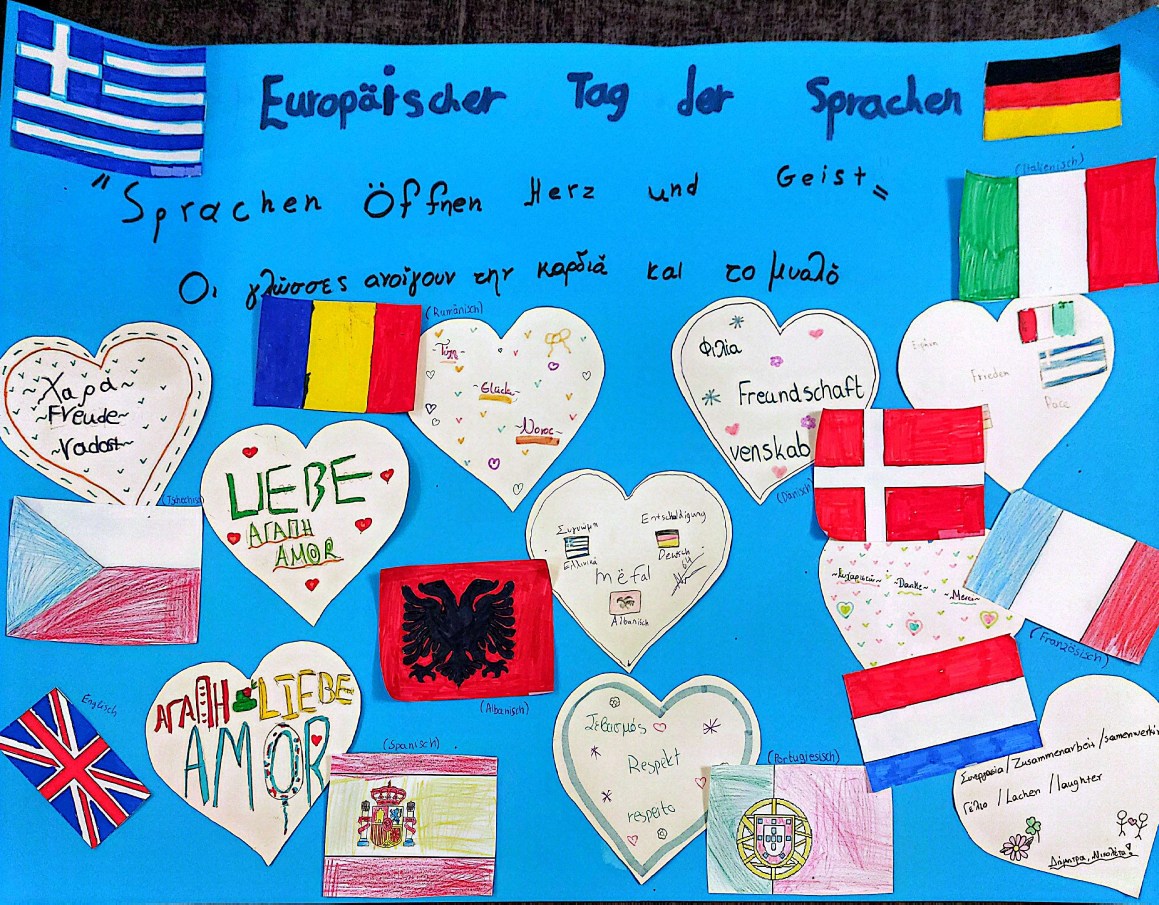 Europäischer Tag der Sprachen
"Sprachen Öffnen Herz und Geist"
Οι γλώσσες ανοίγουν την καρδιά και το μυαλό
(Italienisch)
(Rumänisch)
~Χαρά~
~Freude~
~radost~
(Tschechisch)
LIEBE
ΑΓΑΠΗ
AMOR
~Τύχη~
~Glück~
~Noroc~
Φιλία
Freundschaft
venskab
(Dänisch)
Ειρήνη
Frieden
Pace
Συγνώμη
Ελληνικά
Entschuldigung
Deutsch
mëfal
Albanisch
(Albanisch)
~Ευχαριστώ~
~Danke~
~Merci~
(Französisch)
Englisch
ΑΓΑΠΗ=LIEBE
AMOR
(Spanisch)
Σεβασμός
Respekt
respeto
(Portugiesisch)
Συνεργασία/Zusammenarbeit/samenwerki
Γέλιο/Lachen/laughter
Δήμητρα, Νικολέτα!